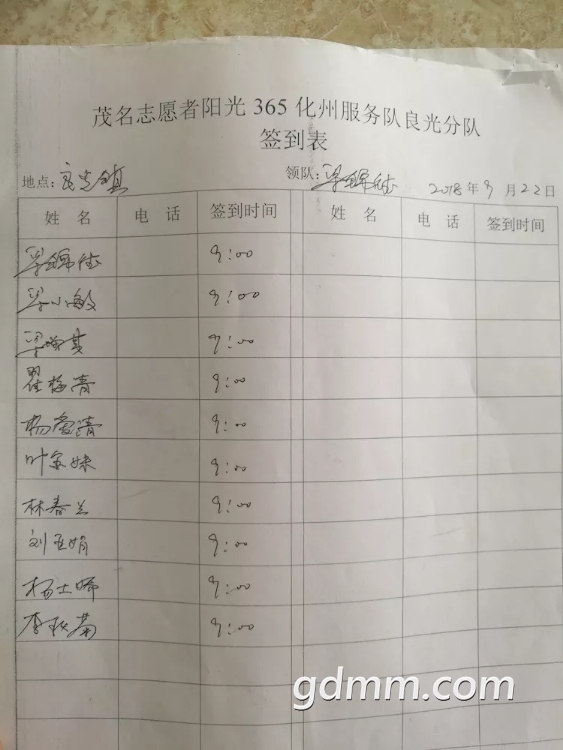 茂名志愿者阳光365化州服务队良光分队
签到表
地点：良光镇 领队： 2018年9月22日
姓 名 电 话 签到时间 姓 名 电 话 签到时间
9:00
梁小敏 9:00
9:00
翟梅青 9:00
杨 清 9:00
叶 妹 9:00
林春兰 9:00
刘亚娟 9:00
杨士 9:00
李秋菊 9:00
gdmm.com